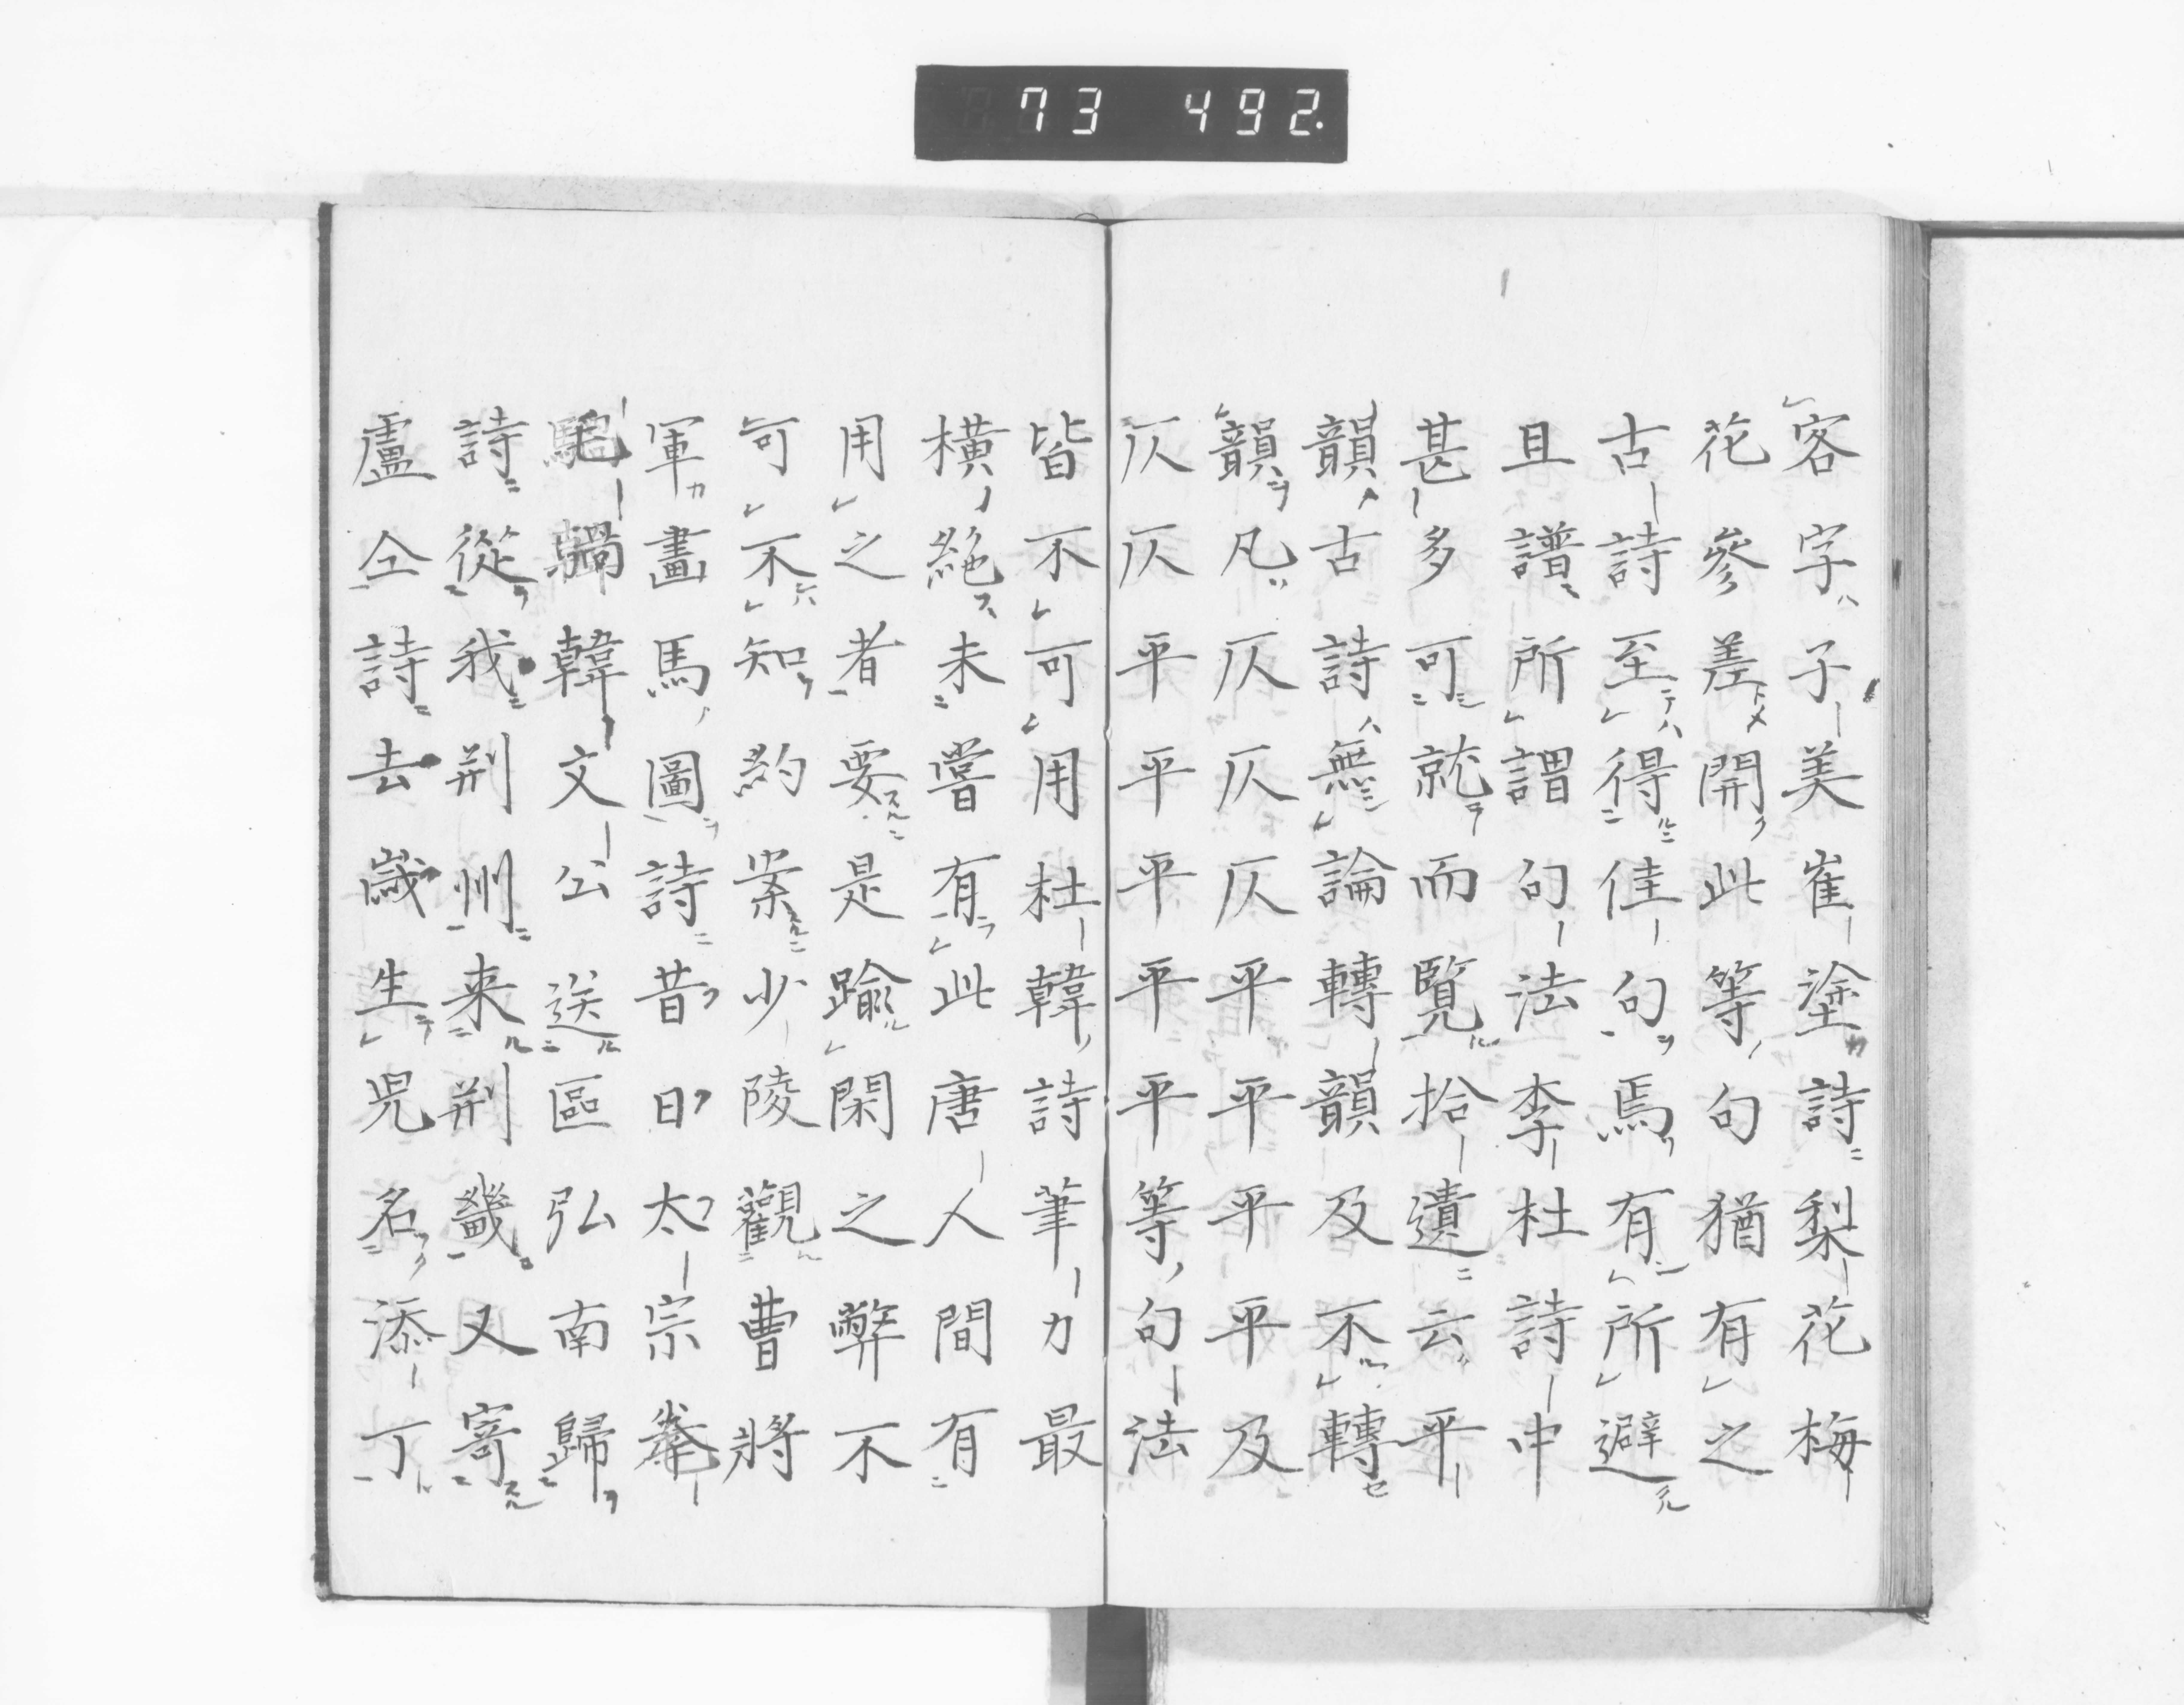 73 492.
客字子美崔塗詩梨花梅
花參差開此等句猶有之
古詩至得佳句焉有所避
且譜所謂句法李杜詩中
甚多可就而覧拾遺云平
韻古詩無論轉韻及不轉
韻凡仄仄仄平平平平及
仄仄平平平平平等句法
皆不可用杜韓詩筆力最
横絶未嘗有此唐人間有
用之者要是踰閑之弊不
可不知約案少陵觀曹將
軍畫馬圖詩昔日太宗拳
騧韓文公送區弘南歸
詩從我荊州来荊畿又寄
盧仝詩去歳生児名添丁